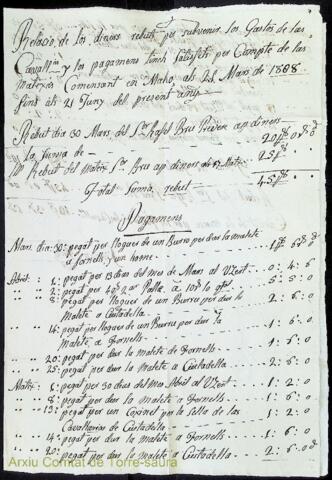 Relacio de los diners rebuts per subvenir los Gastos de las
Cavallerias y los pagaments tinch satisfets per Compte de las
matexas Comensant en Mahó, als 28 Mars de 1808
fins als 21 Juny del present any
Rebut dia 30 Mars del Sor Rafel Bru Prevere ap diners
la suma de 20
Rebut del Matex Sor Bru ap diners 25
Total suma rebut 45
Pagamens
Mars dia 30: pagat per llogues de un Burro per dur la maleta
a Fornells y un home
Abril: 1: pagat per 13 dias del mes de Mars al 0: 4: 6
2: pagat per Palla 5: 5: 0
8: pagat per llogues de un Burro per dur la
maleta a Ciutadella 2: 6: 0
14: pagat per llogues de un Burro per dur la
maleta a Fornells 1: 6: 0
20: pagat per dur la maleta de Fornells 1: 6: 0
25: pagat per dur la maleta a Ciutadella 2: 6: 0
8: pagat per 30 dias del mes Abril al 1: 2: 0
8: pagat per dur la maleta a Fornells 1: 6: 0
13: pagat per un per la Sella de las
Cavallerias de Ciutadella 1: 2: 0
14: pagat per dur la maleta a Fornells 1: 6: 0
20: pagat per dur la maleta a Ciutadella 2: 6: 0
Arxiu Comtat de Torre-saura